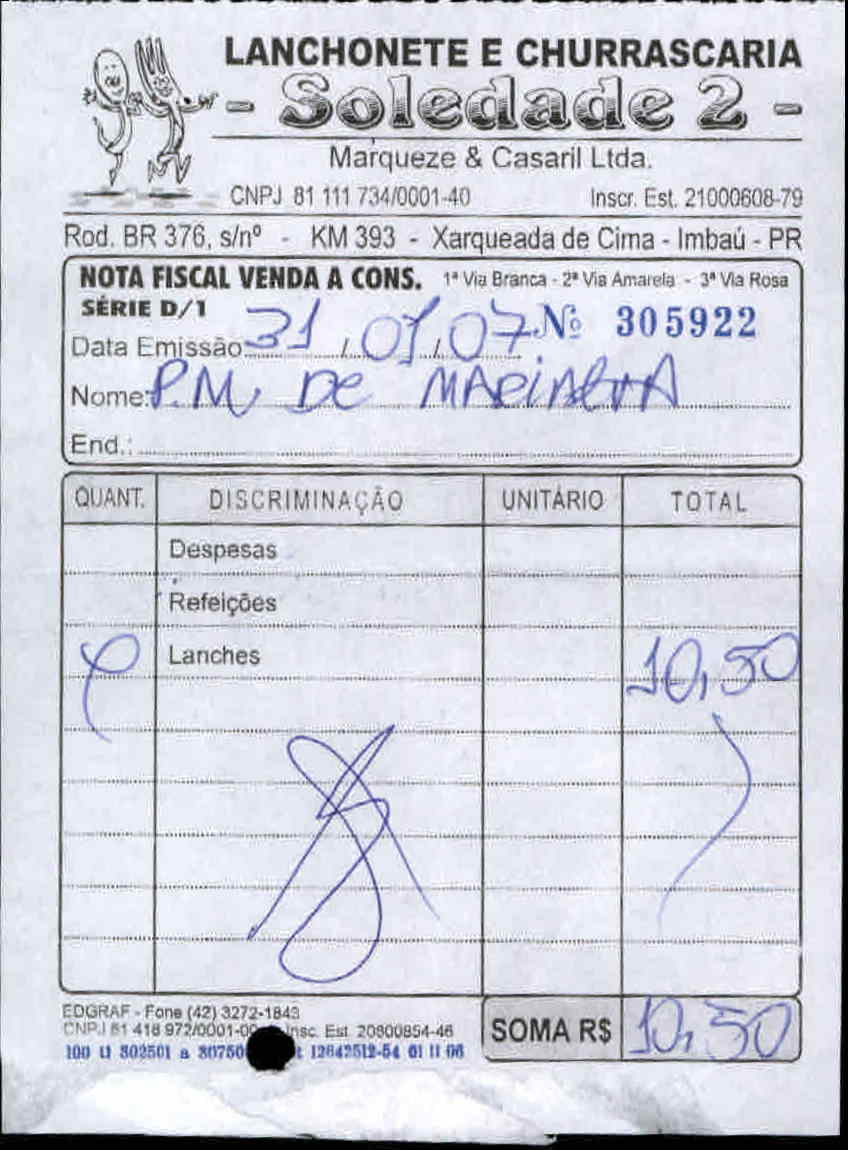 LANCHONETE E CHURRASCARIA
- Soledade 2 -
Marqueze & Casaril Ltda.
CNPJ 81 111 734/0001-40 Inscr. Est. 21000608-79
Rod. BR 376, s/nº - KM 393 - Xarqueada de Cima - Imbaú - PR
NOTA FISCAL VENDA A CONS. 1ª Via Branca - 2ª Via Amarela - 3ª Via Rosa
SÉRIE D/1
Nº 305922
Data Emissão 31 / 01 / 07
Nome: P.M. DE MARIALVA
End.:
QUANT. DISCRIMINAÇÃO UNITÁRIO TOTAL
Despesas
Refeições
Lanches 10,50
EDGRAF - Fone (42) 3272-1843
CNPJ 81 418 972/0001-0 Insc. Est. 20800854-46
100 U 302501 a 30750 12642512-54 01 11 06
SOMA R$ 10,50